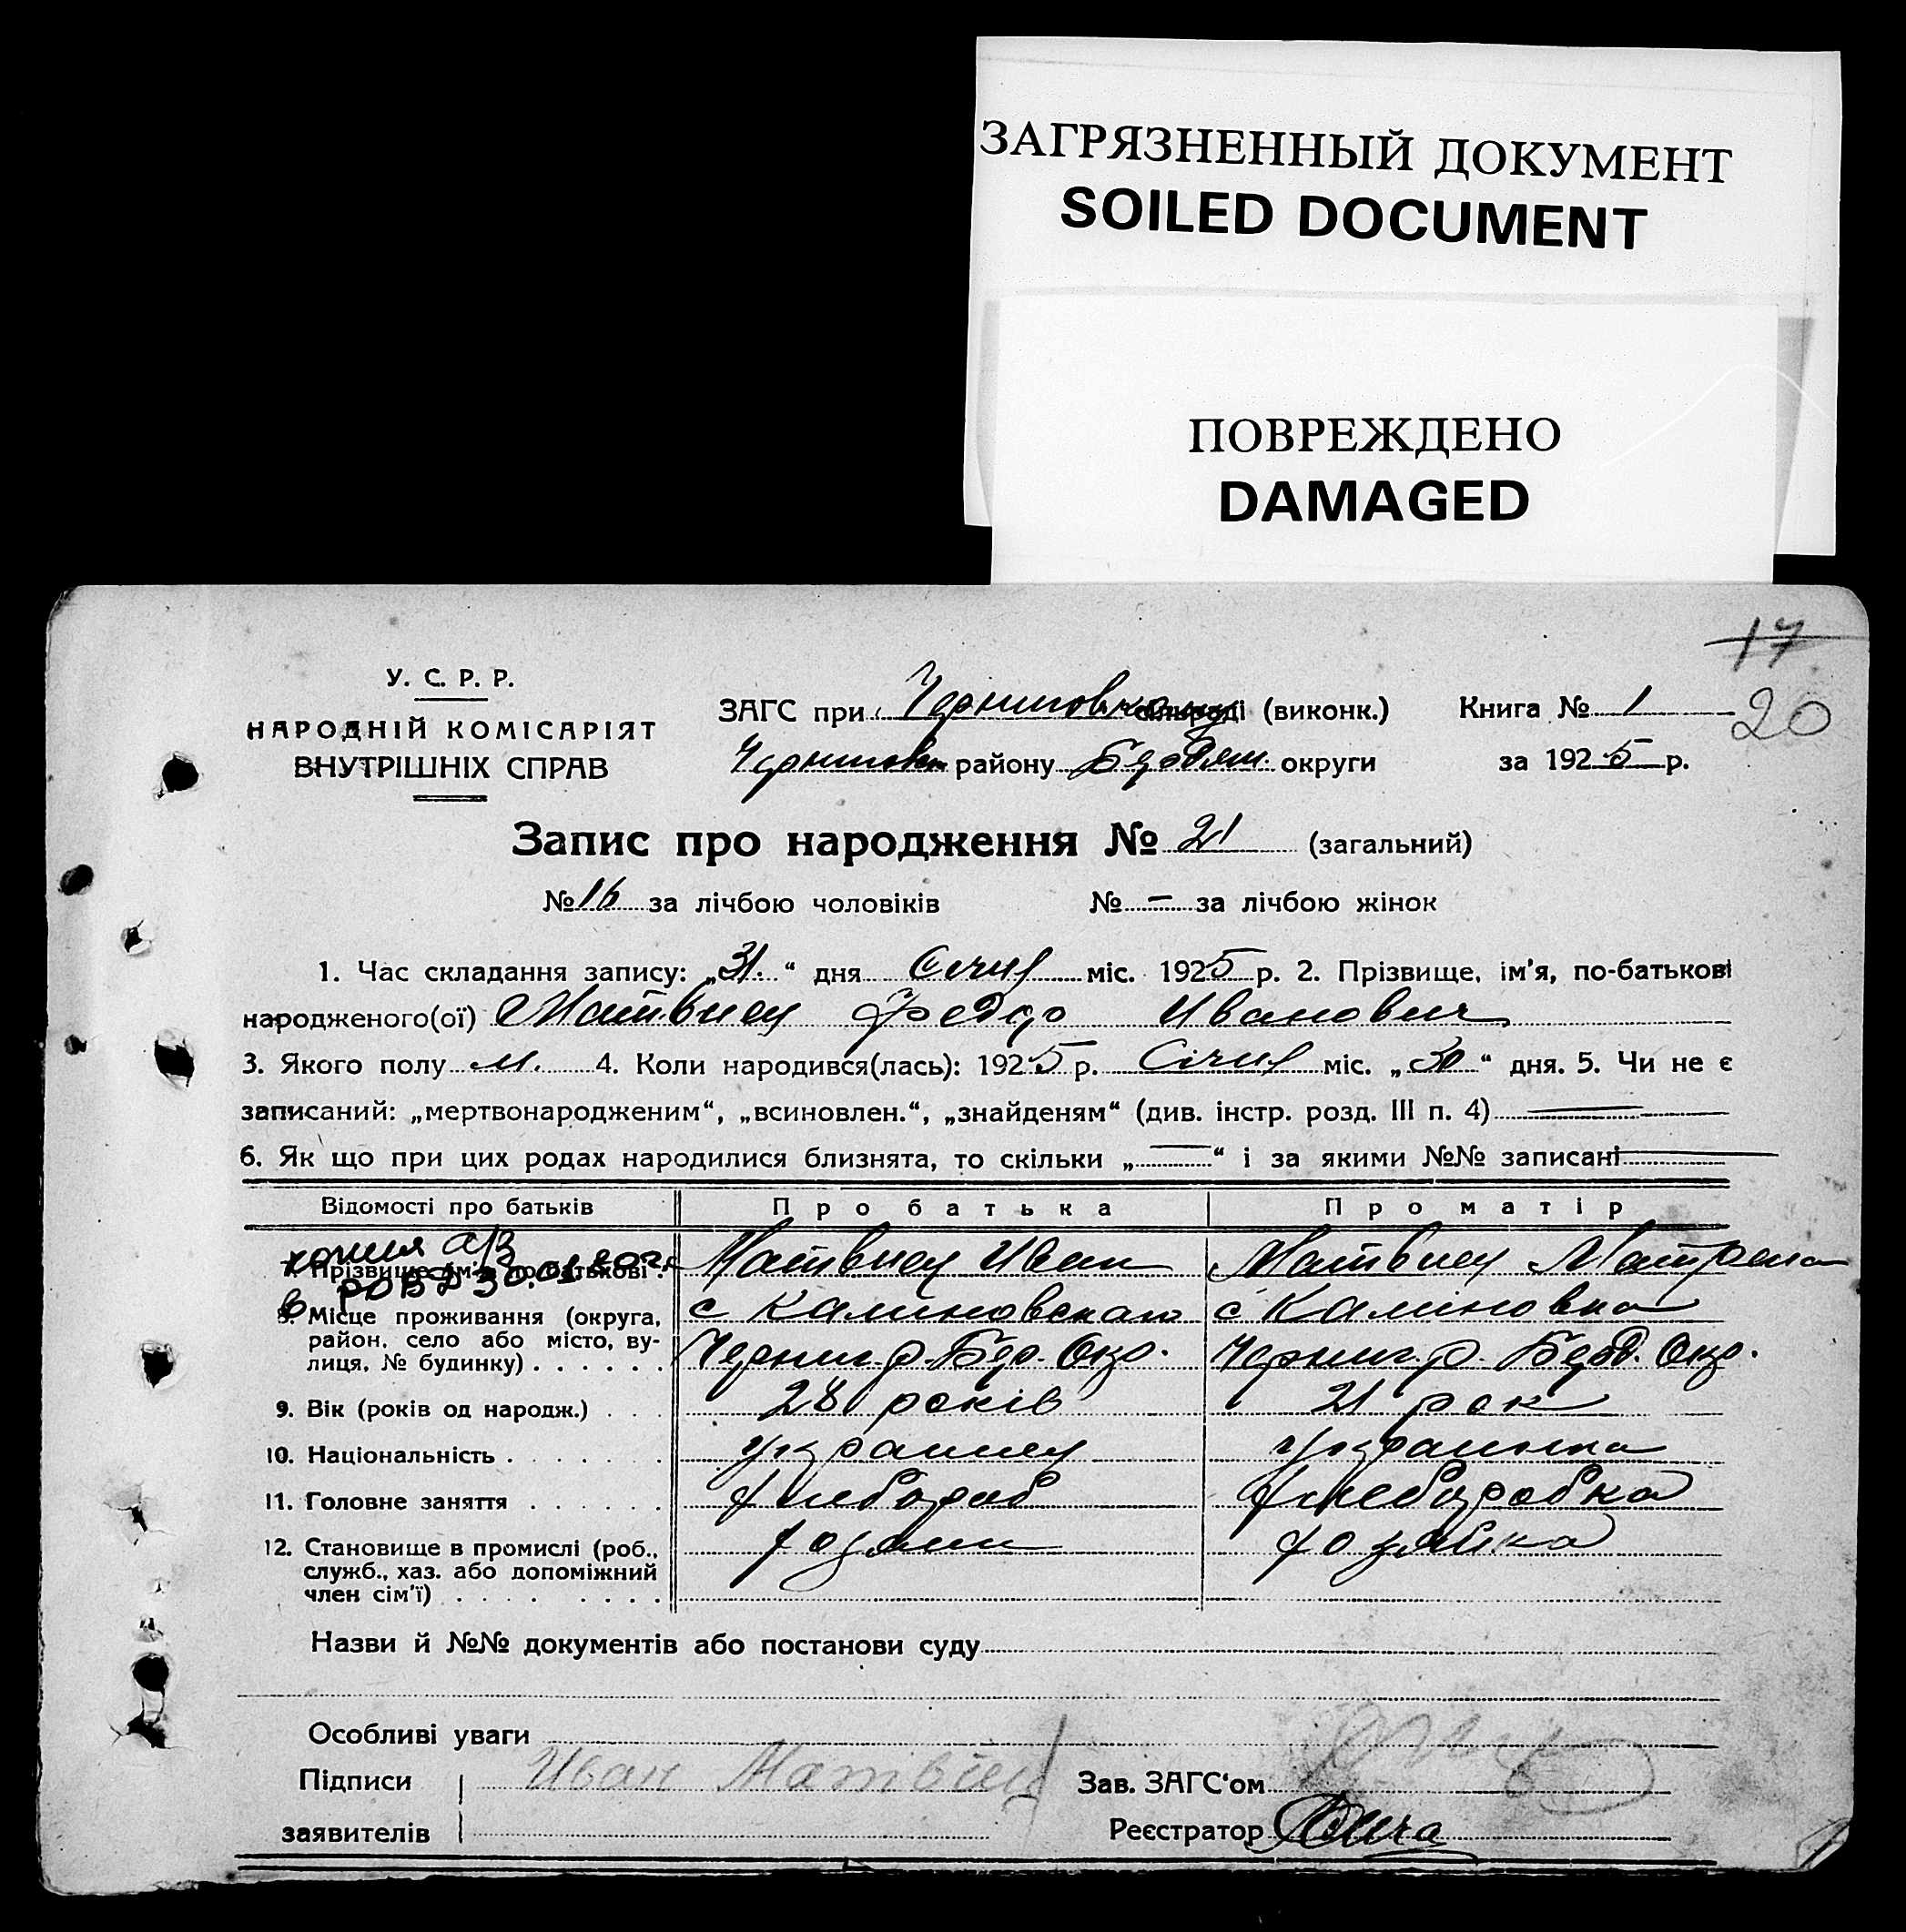 ЗАГРЯЗНЕННЫЙ ДОКУМЕНТ
SOILED DOCUMENT
ПОВРЕЖДЕНО
DAMAGED
17
20
У. С. Р. Р.
НАРОДНІЙ КОМІСАРІЯТ
ВНУТРІШНІХ СПРАВ
ЗАГС при сільраді (виконк.) Книга № 1
району Бердян. округи за 1925 р.
Запис про народження № 21 (загальний)
№ 16 за лічбою чоловіків № — за лічбою жінок
1. Час складання запису: „31.“ дня Січня міс. 1925 р. 2. Прізвище, ім'я, по-батькові
народженого(ої) Матвиец Федор Иванович
3. Якого полу м. 4. Коли народився(лась): 1925 р. Січня міс. „30“ дня. 5. Чи не є
записаний: „мертвонародженим“, „всиновлен.“, „знайденям“ (див. інстр. розд. III п. 4) —
6. Як що при цих родах народилися близнята, то скільки „—“ і за якими №№ записані —
Відомості про батьків Про батька Про матір
копия а/з
в РОВД 30.01.20
7. Прізвище, ім'я, по-батькові . Матвиец Иван Матвиец Матрена
8. Місце проживання (округа, район, село або місто, ву-
лиця, № будинку) . . . . . .
с с Каліновка
Черниг. р. Бер. Окр. Черниг. р. Берд. Окр.
9. Вік (років од народж.) . . . 28 років 21 рок
10. Національність . . . . . . . украинец украинка
11. Головне заняття . . . . . . хлебороб хлеборобка
12. Становище в промислі (роб., хозяин хозяйка
служб., хаз. або допоміжний
член сім'ї) . . . . . . . .
Назви й №№ документів або постанови суду
Особливі уваги
Підписи Иван Матвіец Зав. ЗАГС'ом
заявителів Реєстратор